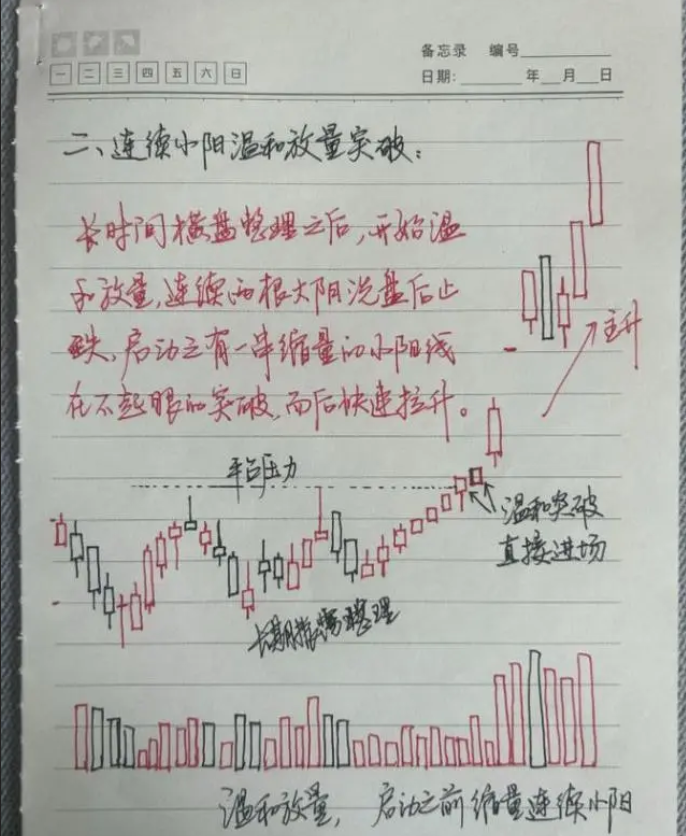 备忘录 编号
一 二 三 四 五 六 日
日期: 年 月 日
二、连续小阳温和放量突破：
长时间横盘整理之后，开始温
和放量，连续两根大阳洗盘后止
跌，启动之有一串缩量的小阳线
在不起眼的突破，而后快速拉升。
主升
平台压力
温和突破
直接进场
长期横盘整理
温和放量， 启动之前缩量连续小阳